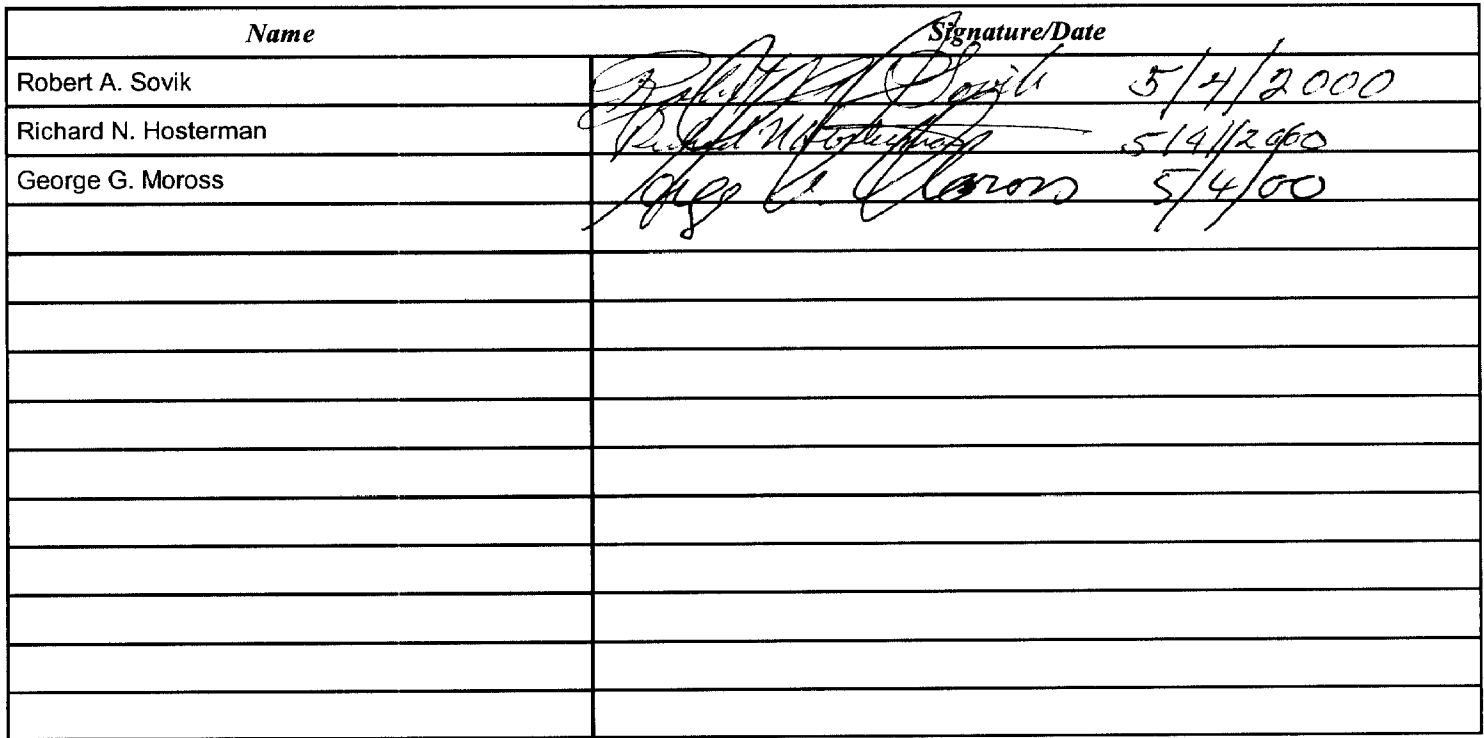 Name Signature/Date
Robert A. Sovik Robert A Sovik 5/4/2000
Richard N. Hosterman Richard N Hosterman 5/4/2000
George G. Moross George G. Moross 5/4/00